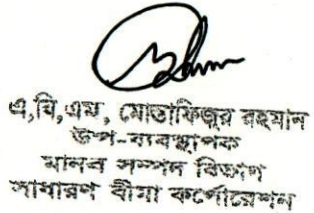 এ,বি,এম, মোস্তাফিজুর রহমান
উপ-ব্যবস্থাপক
মানব সম্পদ বিভাগ
সাধারণ বীমা কর্পোরেশন